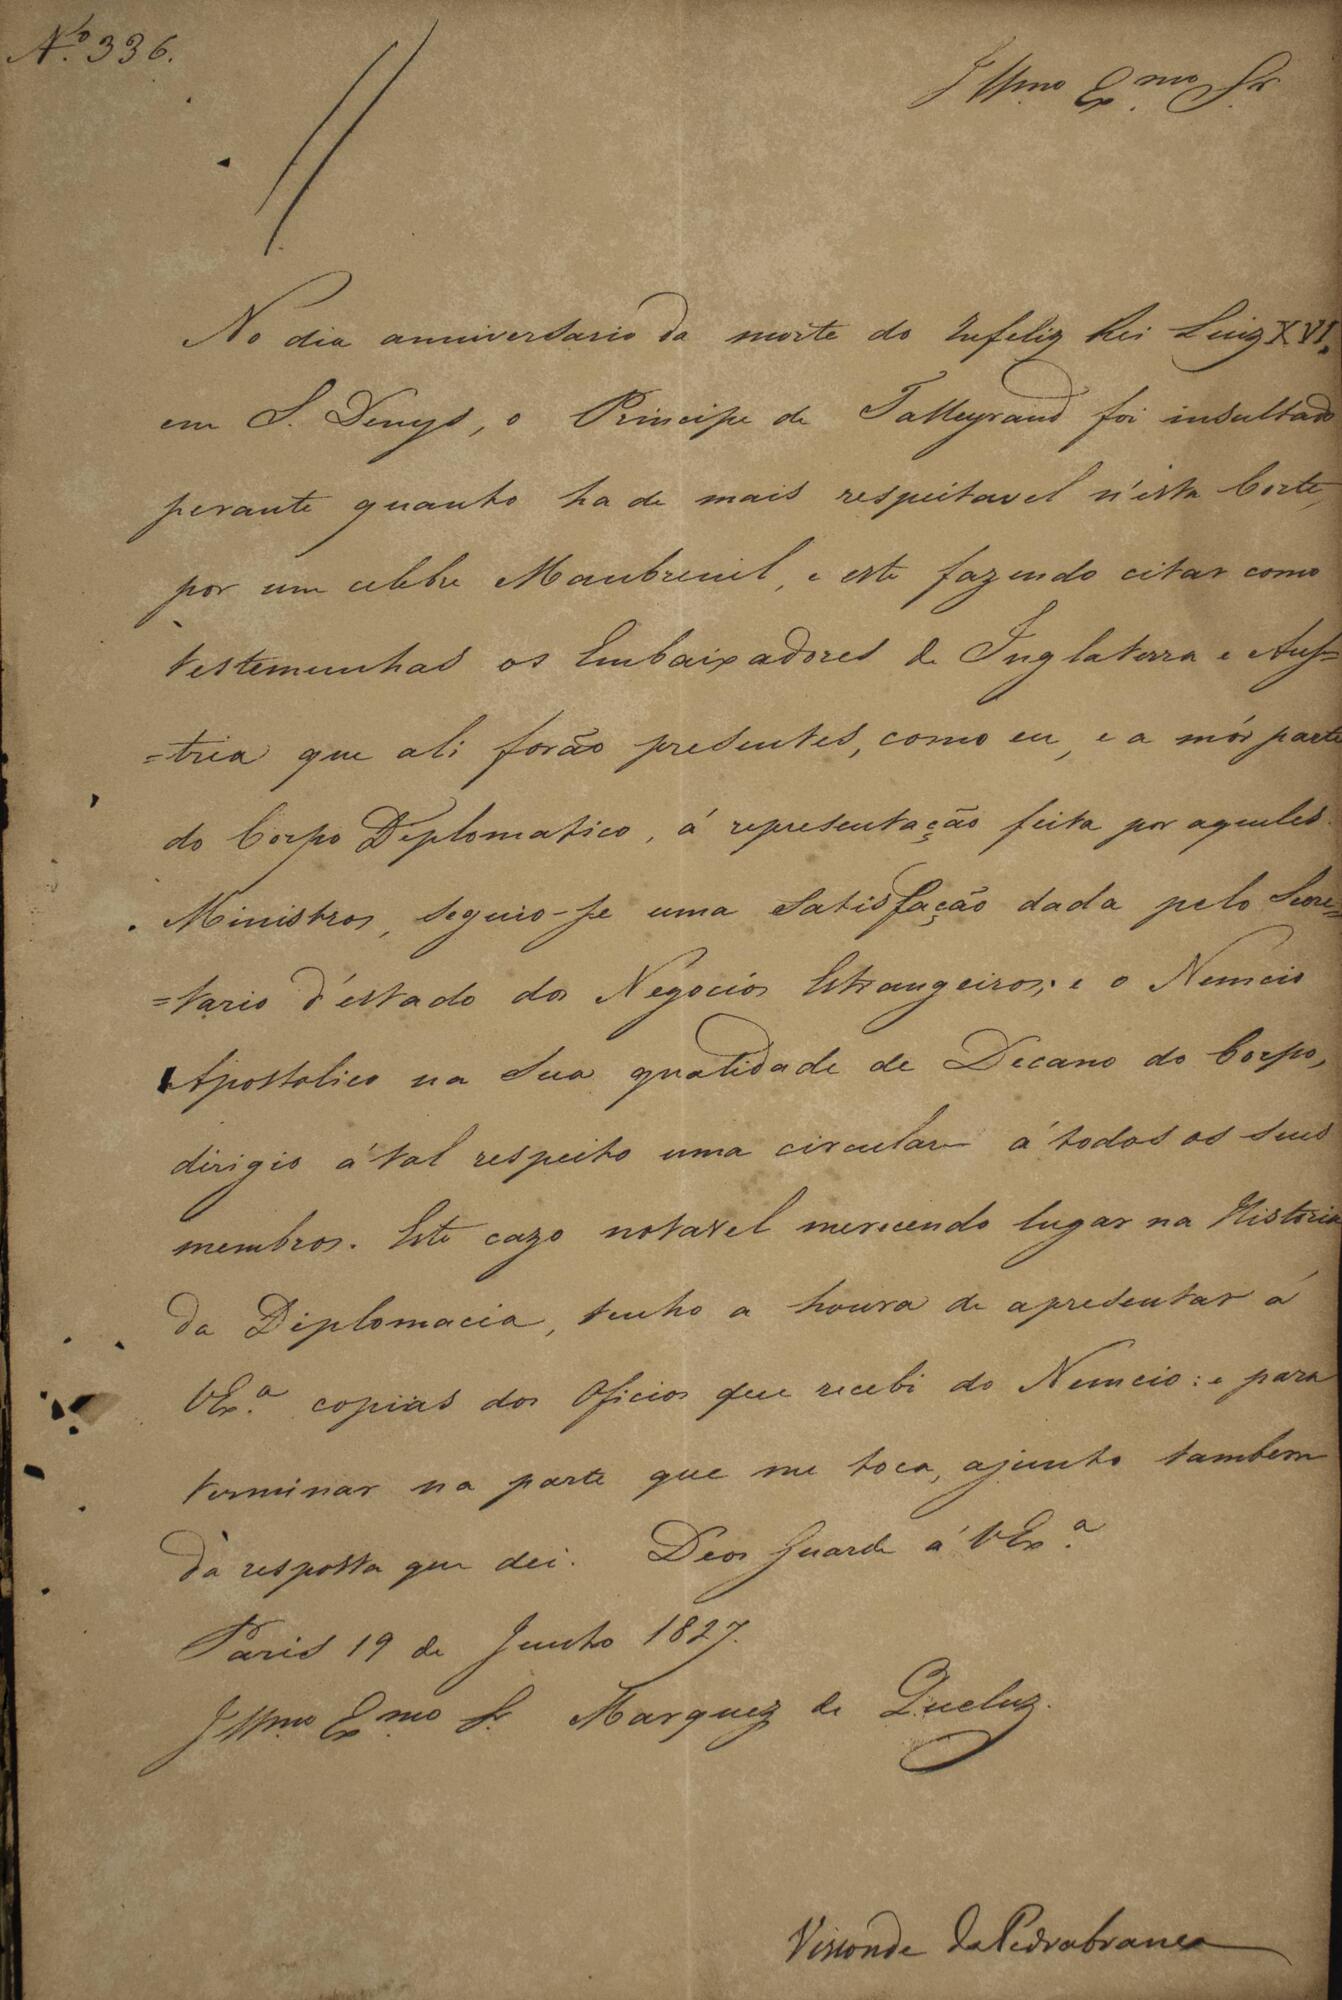 N.º 336.
Illmo Exmo Sr
No dia anniversario da morte do infeliz Rei Luiz XVI,
em S. Denys, o Principe de Talleyrand foi insultado
perante quanto ha de mais respeitavel n'esta Corte,
por um celebre Maubreuil, e este fazendo citar como
testemunhas os Embaixadores de Inglaterra e Aus=
=tria que ali forão presentes, como eu, e a mór parte
do Corpo Diplomatico, á representação feita por aquelles
Ministros, seguio-se uma satisfação dada pelo Secre=
=tario d'estado dos Negocios Estrangeiros; e o Nuncio
Apostolico na sua qualidade de Decano do Corpo,
dirigio á tal respeito uma circular á todos os seus
membros. Este cazo notavel merecendo lugar na Historia
da Diplomacia, tenho a honra de apresentar á
VExª copias dos Oficios que recebi do Nuncio: e para
terminar na parte que me toca, ajunto tambem
da resposta que dei. Deos Guarde á VExª
Paris 19 de Junho 1827.
Illmo Exmo Sr Marquez de Queluz.
Visconde da Pedrabranca